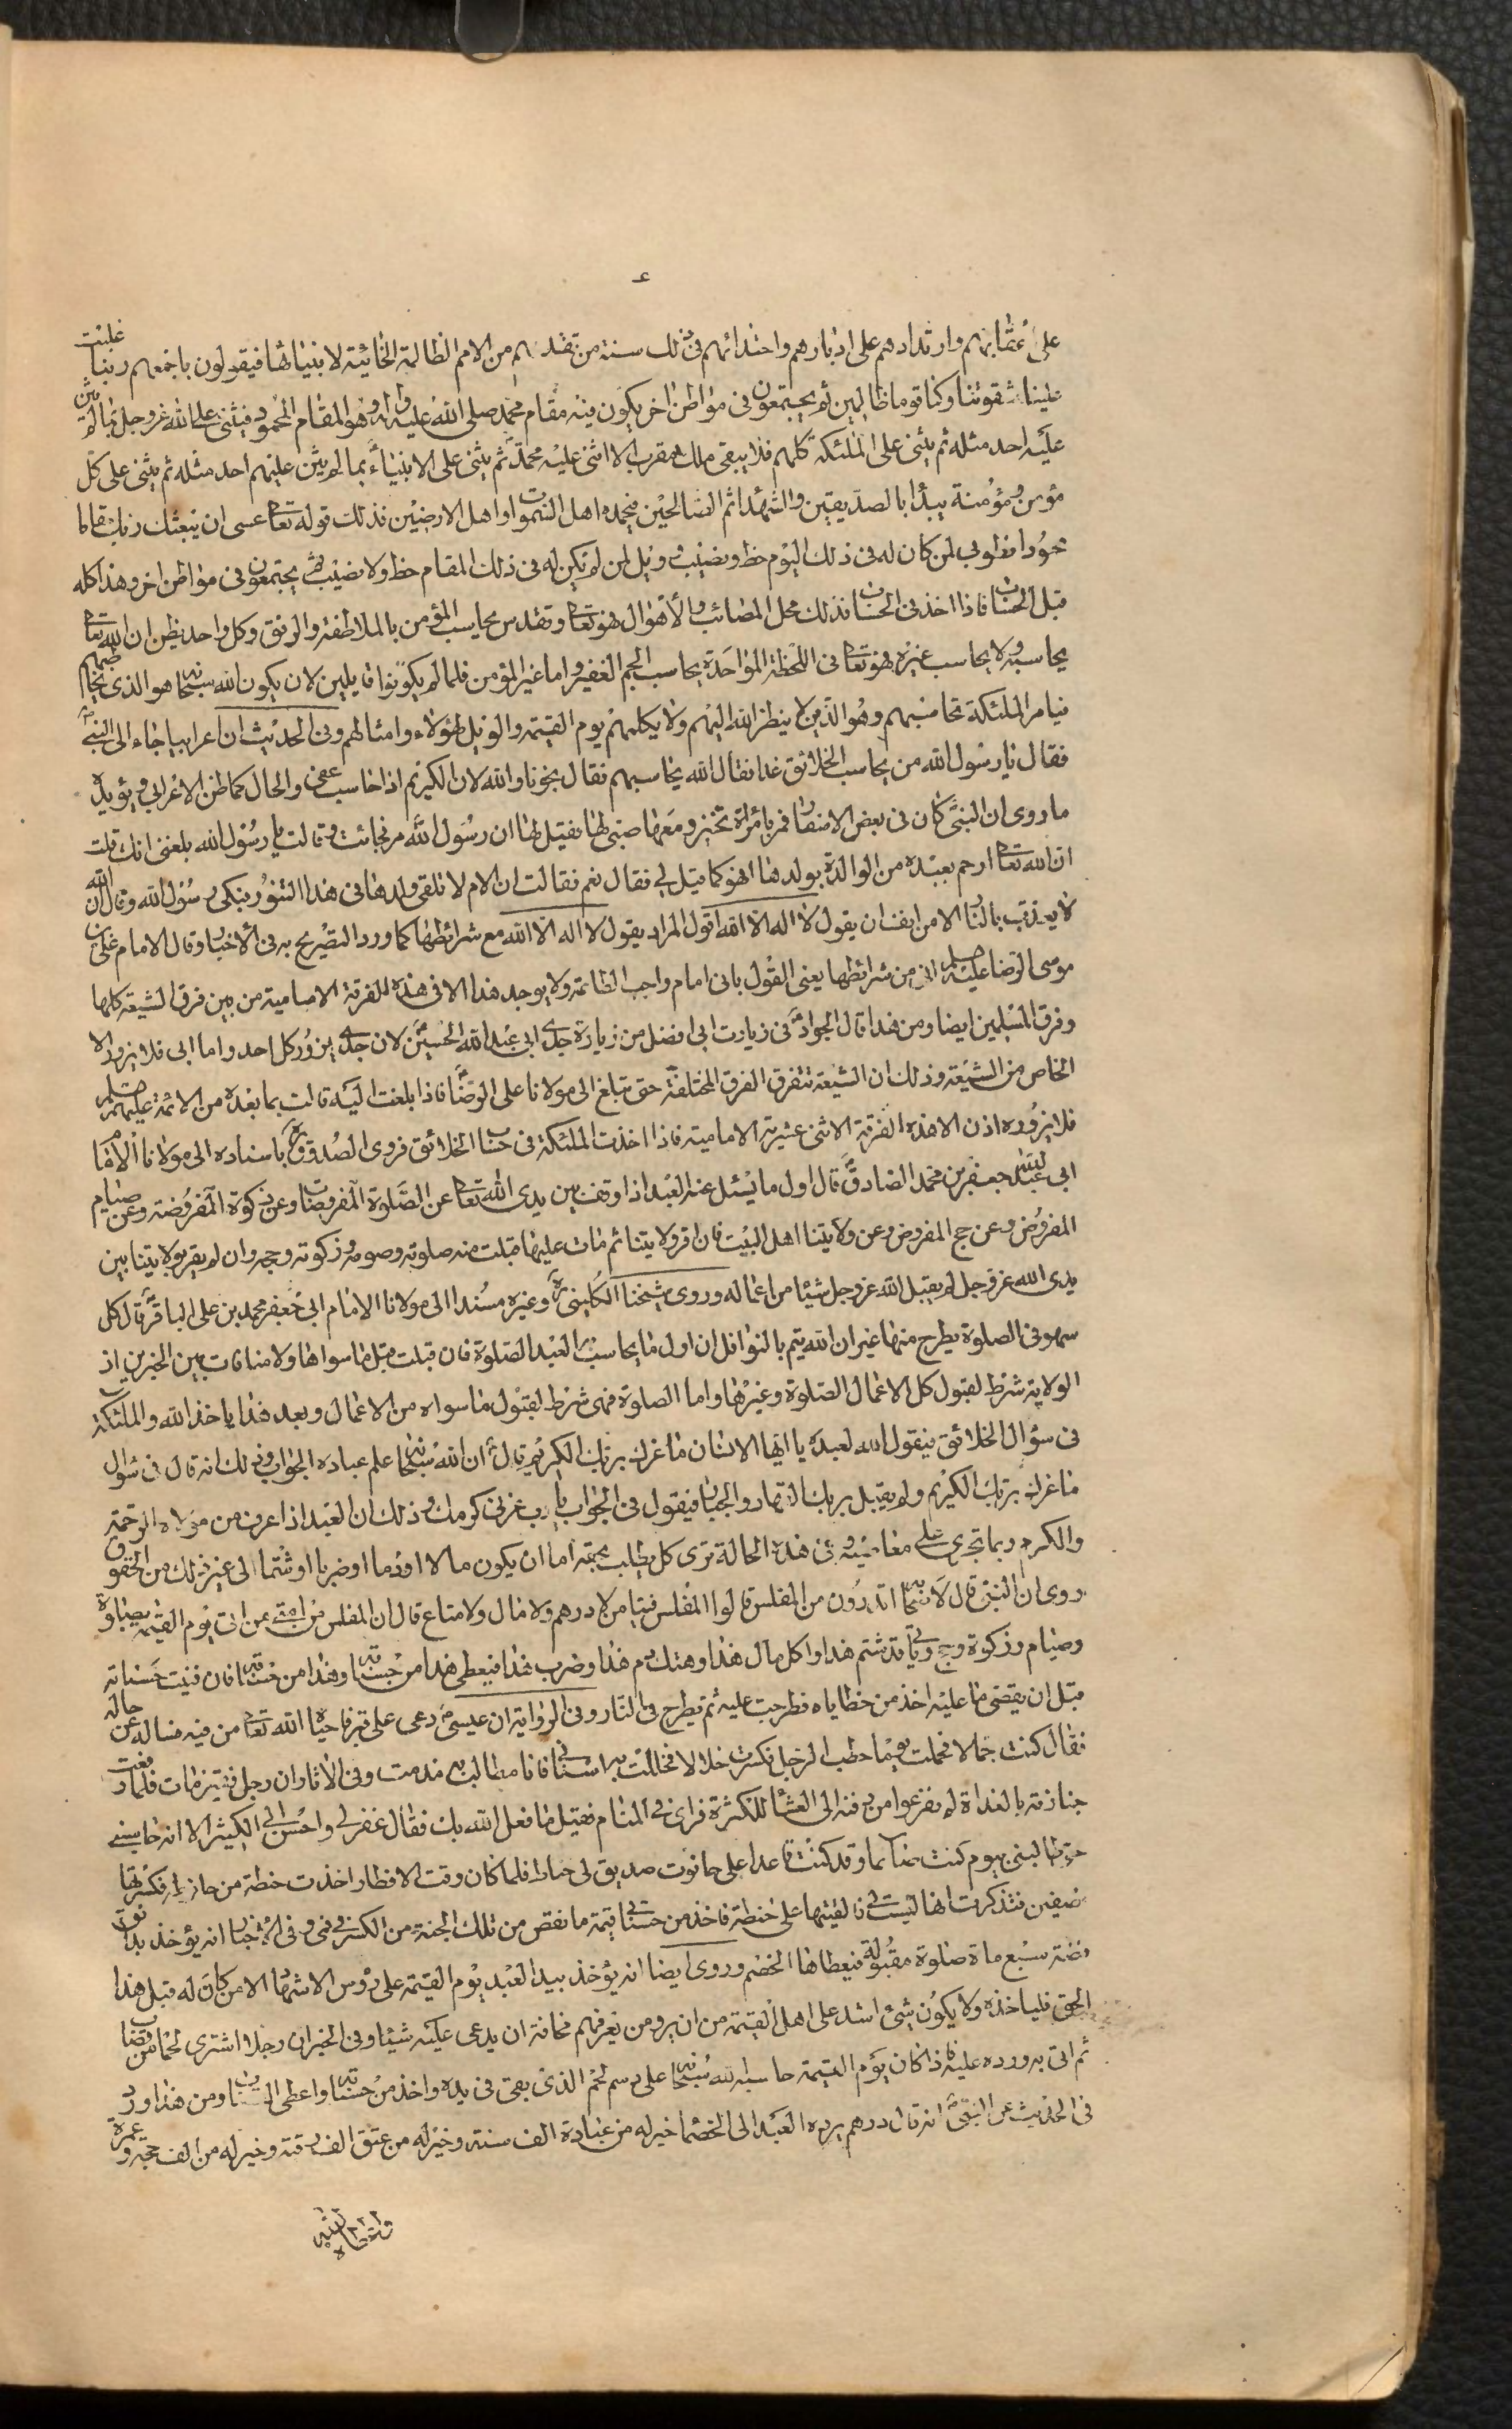 ع
على اعقابهم وارتدادهم على ادبارهم واحتذائهم فى ذلك سنة من تقدمهم من الامم الظالمة الخائنة لانبيائها فيقولون باجمعهم ربنا غلبت
علينا شقوتنا وكنا قوما ظالمين ثم يجتمعون فى مواطن اخر يكون فيه مقام محمد صلى الله عليه واله وهو المقام المحمود فيثنى على الله عز وجل بما لم يثن
عليه احد مثله ثم يثنى على الملئكة كلهم فلا يبقى ملك مقرب الا اثنى عليه محمد ثم يثنى على الانبياء بما لم يثن عليهم احد مثله ثم يثنى على كل
مؤمن ومؤمنة يبدأ بالصديقين والشهدا ثم الصالحين فيحمده اهل السموات واهل الارضين فذلك قوله تعا عسى ان يبعثك ربك مقاما
محمودا فطوبى لمن كان له فى ذلك اليوم حظ ونصيب وويل لمن لم يكن له فى ذلك المقام حظ ولا نصيب ثم يجتمعون فى مواطن اخر وهذا كله
قبل الحساب فاذا اخذ فى الحساب فذلك محل المصائب والاهوال فهو تعا وتقدس يحاسب المؤمن بالملاطفة والرفق وكل واحد يظن ان الله تعا
يحاسبه ولا يحاسب غيره فهو تعا فى اللحظة الواحدة يحاسب الجم الغفير واما غير المؤمن فلما لم يكونوا قابلين لان يكون الله سبحانه هو الذى يحاسبهم
فيامر الملئكة تحاسبهم وهو الذين لا ينظر الله اليهم ولا يكلمهم يوم القيمة والويل لهؤلاء وامثالهم وفى الحديث ان اعرابيا جاء الى النبى
فقال يا رسول الله من يحاسب الخلائق غدا فقال الله يحاسبهم فقال نجونا والله لان الكريم اذا حاسب عفى والحال كما ظن الاعرابى ويؤيده
ما روى ان النبى كان فى بعض الاسفار فمر بامراة تخبز ومعها صبى لها فقيل لها ان رسول الله مر فجائت وقالت يا رسول الله بلغنى انك قلت
ان الله تعا ارحم بعبده من الوالدة بولدها افهو كما قيل لى فقال نعم فقالت ان الام لا تلقى ولدها فى هذا التنور فبكى رسول الله وقال ان الله
لا يعذب بالنار الا من انف ان يقول لا اله الا الله اقول المراد بقول لا اله الا الله مع شرائطها كما ورد التصريح به فى الاخبار وقال الامام على بن
موسى الرضا عليه السلم انى من شرائطها يعنى القول بانى امام واجب الطاعة ولا يوجد هذا الا فى هذه الفرقة الامامية من بين فرق الشيعة كلها
وفرق المسلمين ايضا ومن هذا قال الجواد فى زيارت ابى افضل من زيارة جدى ابى عبد الله الحسين لان جدى يزوره كل احد واما ابى فلا يزوره الا
الخاص من الشيعة وذلك ان الشيعة تتفرق الفرق المختلفة حتى تبلغ الى مولانا على الرضا فاذا بلغت اليه قالت بما بعده من الائمة عليهم السلم
فلا يزوره اذن الا هذه الفرقة الاثنى عشرية الامامية فاذا اخذت الملئكة فى حساب الخلائق فروى الصدوق باسناده الى مولانا الامام
ابى عبد الله جعفر بن محمد الصادق قال اول ما يسئل عنه العبد اذا وقف بين يدى الله تعا عن الصلوة المفروضات وعن زكوة المفروضة وعن صيام
المفروض وعن حج المفروض وعن ولايتنا اهل البيت فان اقر ولايتنا ثم مات عليها قبلت منه صلوته وصومه وزكوته وحجه وان لم يقر بولايتنا بين
يدى الله عز وجل لم يقبل الله عز وجل شيئا من اعماله وروى شيخنا الكلينى وغيره مسندا الى مولانا الامام ابى جعفر محمد بن على الباقر قال كل
سهو فى الصلوة يطرح منها غير ان الله يتم بالنوافل ان اول ما يحاسب العبد الصلوة فان قبلت قبل ما سواها ولا منافات بين الخبرين اذ
الولاية شرط لقبول كل الاعمال الصلوة وغيرها واما الصلوة فهى شرط لقبول ما سواه من الاعمال وبعد هذا ياخذ الله والملئكة
فى سؤال الخلائق فيقول الله لعبده يا ايها الانسان ما غرك بربك الكريم قال ان الله سبحانه علم عباده الجواب وذلك انه قال فى سؤال
ما غرك بربك الكريم ولم يقبل بربك القهار والجبار فيقول فى الجواب يا رب غرنى كرمك وذلك ان العبد اذا عرف من مولاه الرحمة
والكرم ربما تجرى على معاصيه وفى هذه الحالة ترى كل يطلب بحقه اما ان يكون مالا او دما او ضربا او شتما الى غير ذلك من الحقوق
روى ان النبى قال لاصحابه اتدرون من المفلس قالوا المفلس فينا من لا درهم ولا مال ولا متاع قال ان المفلس من امتى من اتى يوم القيمة بصلوة
وصيام وزكوة وحج وياتى قد شتم هذا واكل مال هذا وهتك دم هذا وضرب هذا فيعطى هذا من حسناته وهذا من حسناته فان فنيت حسناته
قبل ان يقضى ما عليه اخذ من خطاياه فطرحت عليه ثم يطرح فى النار وفى الرواية ان عيسى دعى على قبر فاحياه الله تعا من فيه فساله عن حاله
فقال كنت حمالا فحملت يوما حطب الرجل فكسرت خلالا فخللت به اسنانى فانا مطالب به مذ مت وفى الاثار ان رجل فقيرمات فلما رفعت
جنازته بالغداة لم يفرغوا من دفنه الى العشاء للكثرة فراى فى المنام فقيل ما فعل الله بك فقال غفر لى واحسن الى الكثير الا انه حاسبنى
حتى طالبنى بيوم كنت صائما وقد كنت قاعدا على حانوت صديق لى حناط فلما كان وقت الافطار اخذت حنطة من حانوته فكسرتها
نصفين فتذكرت انها ليست لى فالقيتها على حنطة فاخذ من حسناتى قيمة ما نقص من تلك الحنة من الكسر فى فمى وفى الاخبار انه يؤخذ بدانق
فضة سبع مائة صلوة مقبولة فيعطاها الخصم وروى ايضا انه يؤخذ بيد العبد يوم القيمة على رؤس الاشهاد الا من كان له قبل هذا
الحق فلياخذه ولا يكون شئ اشد على اهل القيمة من ان يرو من يعرفهم مخافة ان يدعى عليه شيئا وفى الخبر ان رجلا اشترى لحما من قصاب
ثم اتى به ورده عليه فاذا كان يوم القيمة حاسبه الله سبحانه على رسم لحم الذى بقى فى يده واخذ من حسناته واعطى القصاب ومن هذا ورد
فى الحديث عن النبى انه قال درهم يرده العبد الى الخصماء خير له من عبادة الف سنة وخير له من عتق الف رقبة وخير له من الف حجة وعمرة